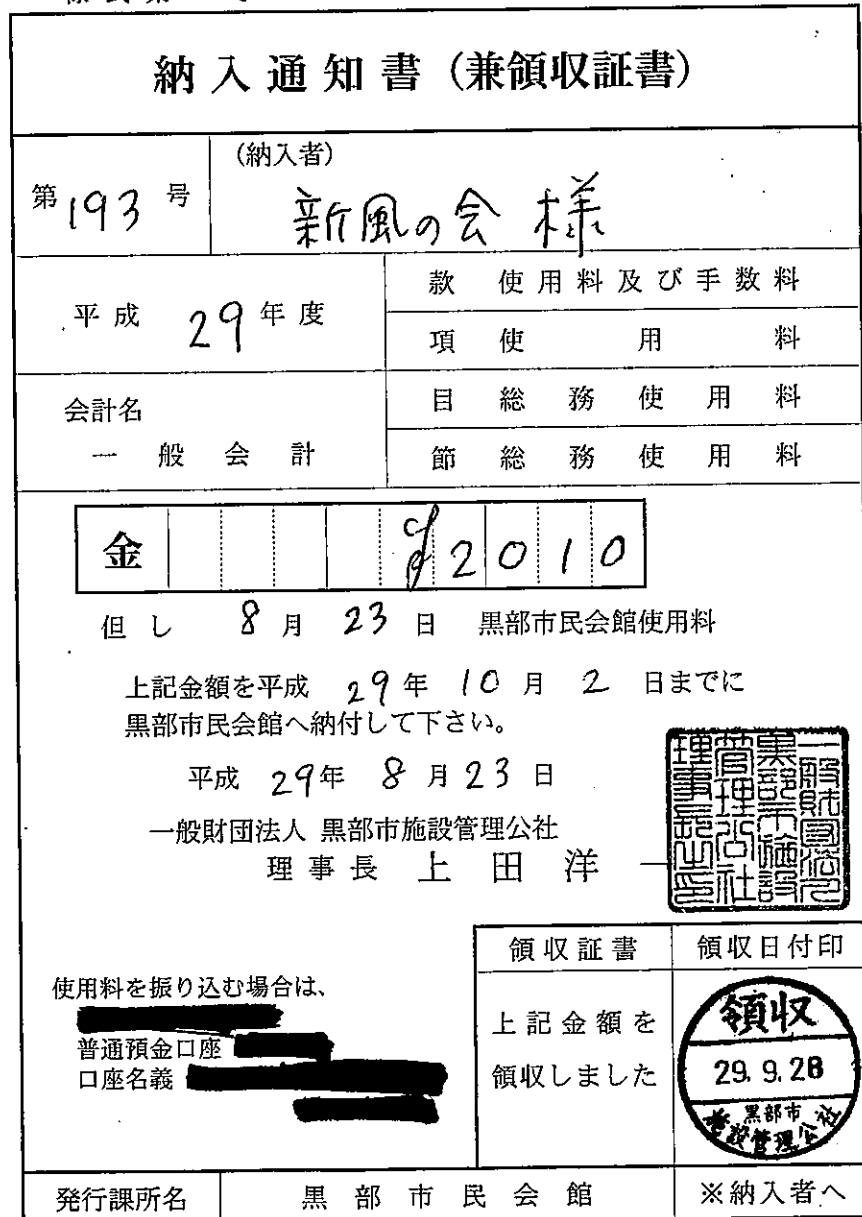 納入通知書(兼領収証書)
第193号
(納入者)
新風の会 様
平成 29年度
款 使用料及び手数料
項 使用料
会計名
一般会計
目 総務使用料
節 総務使用料
金 ¥2010
但し 8月 23日 黒部市民会館使用料
上記金額を平成 29年 10月 2日までに
黒部市民会館へ納付して下さい。
平成 29年 8月23日
一般財団法人 黒部市施設管理公社
理事長 上田洋一
一般財団法人
黒部市施設
管理公社
理事長之印
使用料を振り込む場合は、
普通預金口座
口座名義
領収証書
上記金額を
領収しました
領収日付印
領収
29.9.28
黒部市
施設管理公社
発行課所名
黒部市民会館
※納入者へ